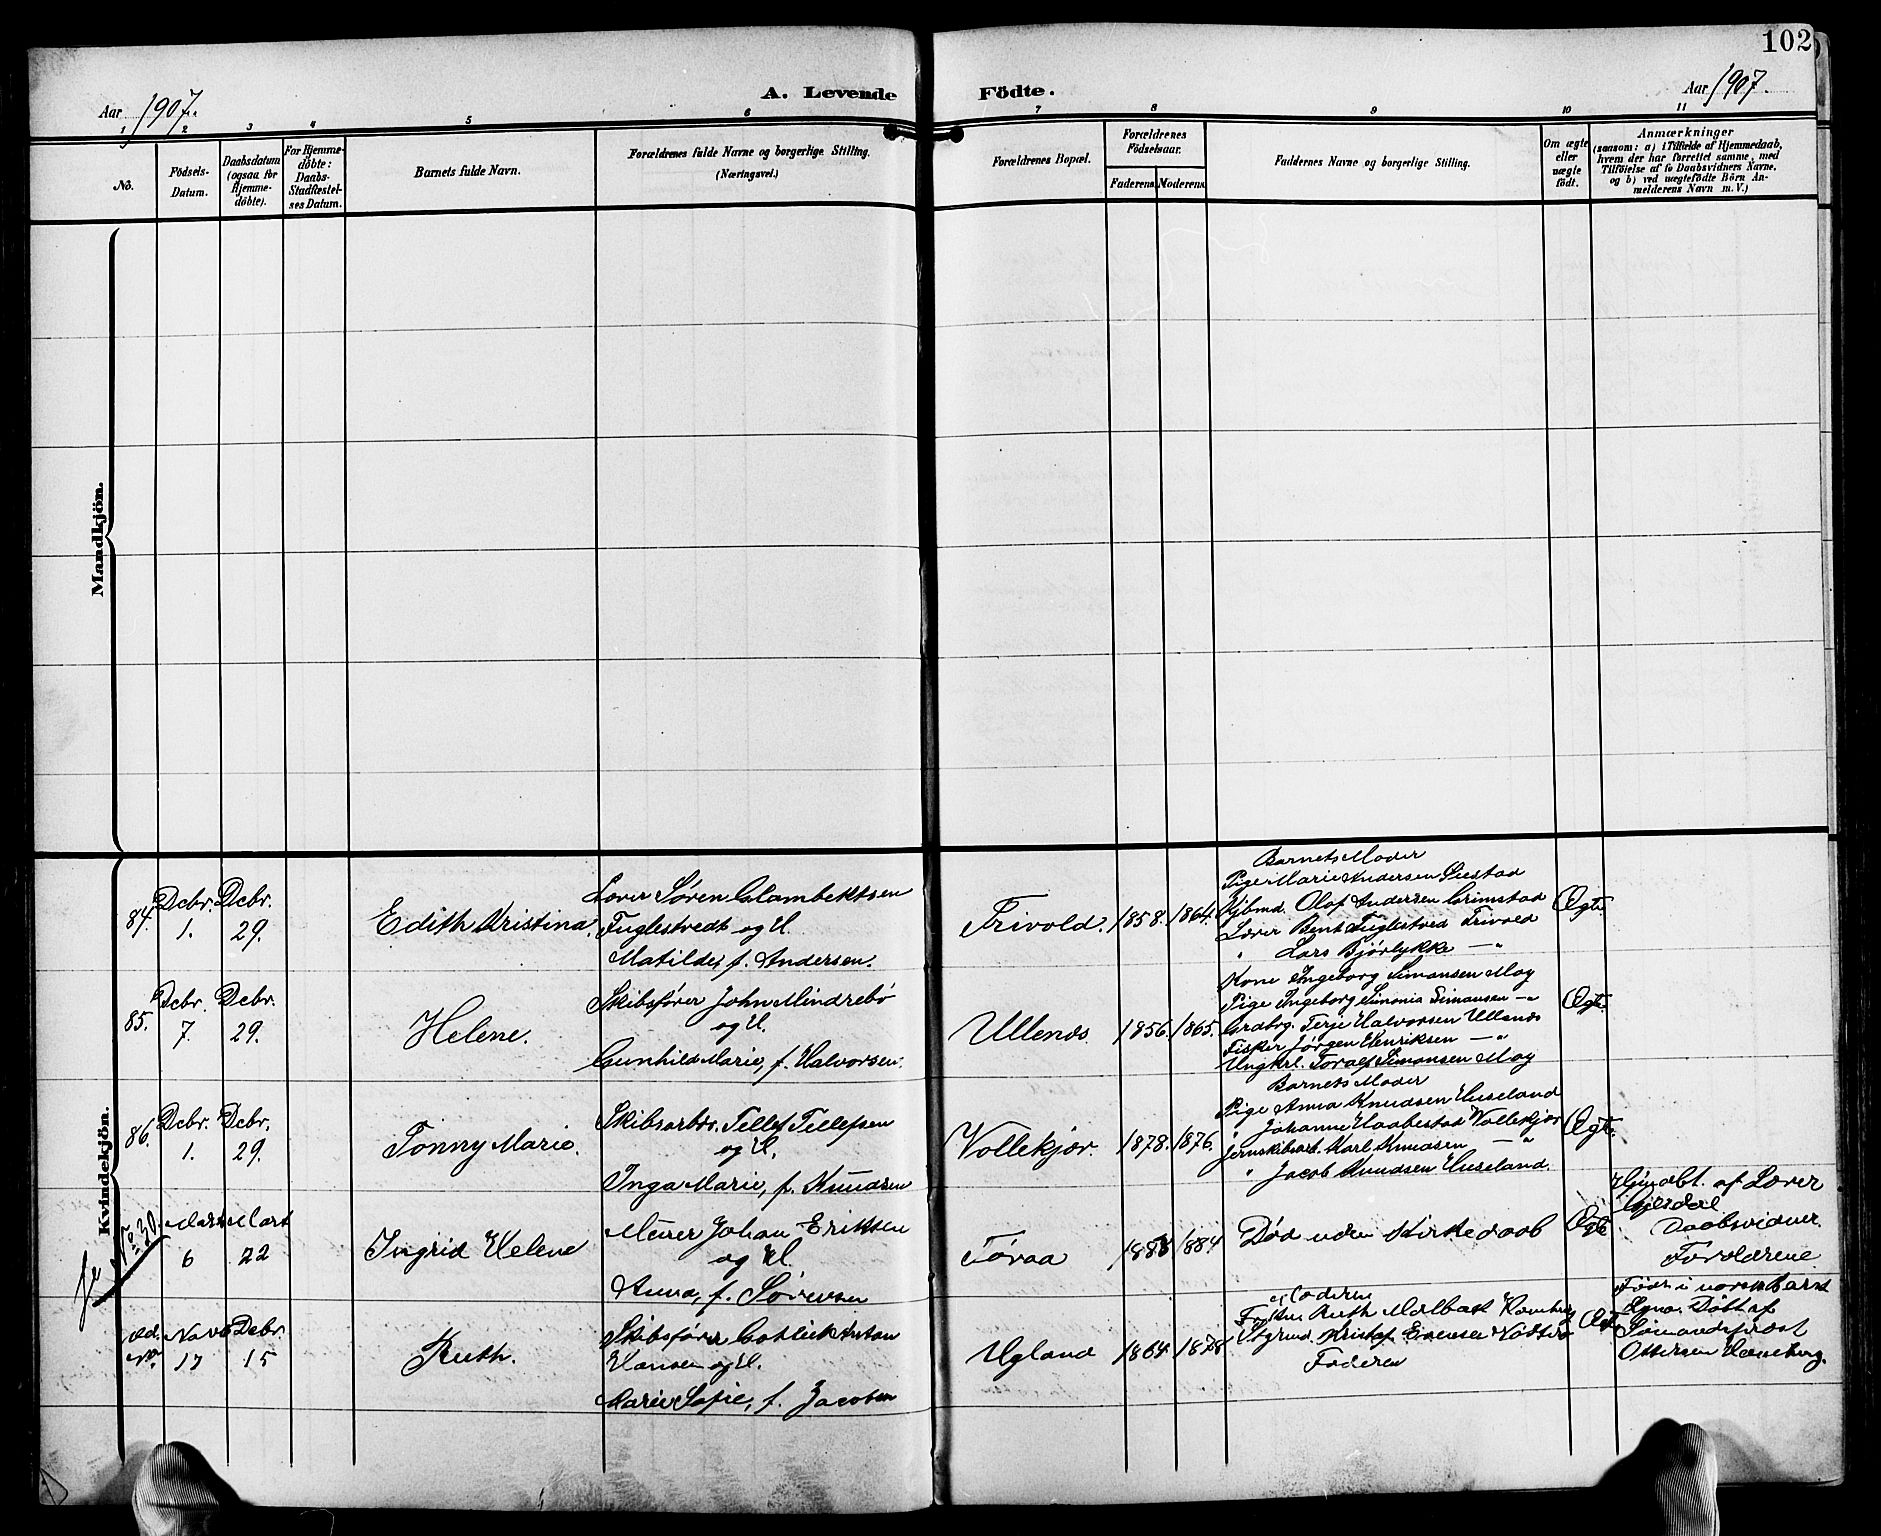 102
Aar 1907.
A. Levende Födte.
Aar 1907.
1 2 3 4 5 6 7 8 9 10 11
No.
Födsels-
Datum.
Daabsdatum
(ogsaa for
Hjemme-
döbte).
For Hjemme-
döbte:
Daabs-
Stadfæstel-
ses Datum.
Barnets fulde Navn.
Forældrenes fulde Navne og borgerlige Stilling.
(Næringsvei.)
Forældrenes Bopæl.
Forældrenes
Födselsaar.
Faderens
Moderens
Faddernes Navne og borgerlige Stilling.
Om ægte
eller
uægte
födt.
Anmærkninger
(saasom: a) i Tilfælde af Hjemmedaab,
hvem der har forrettet samme, med
Tilföielse af to Daabsvidners Navne,
og b) ved uægtefödte Börn An-
melderens Navn m. V.)
Mandkjön.
Kvindekjön.
84. Dcbr. 1. Dcbr. 29.
Edith Kristina.
Lærer Søren Clambektsen
Fuglestvedt og H.
Matilde, f. Andersen.
Frivold. 1858. 1864.
Barnets Moder
Pige Marie Andersen
Kjbmd. Olaf Andersen Grimstad
Lærer Bent Fuglestved Frivold
" Lars Bjørlykke — "
Ægte.
85. Dcbr. 7. Dcbr. 29.
Helene.
Skibsfører John Mindrebø
og H.
Gunhild Marie, f. Halvorsen.
Ullenes 1856. 1865.
Kone Ingeborg Simonsen Moy
Pige Ingeborg Simonia Simonsen — "
Grdbrg. Terje Halvorsen Ullenes
Fisker Jørgen Henriksen — "
Ungkrl. Toralf Simonsen Moy
Ægte.
86. Dcbr. 1. Dcbr. 29.
Tonny Marie.
Skibsarbdr. Tellef Tellefsen
og H.
Inga Marie, f. Knudsen
Vollekjær. 1878. 1876.
Barnets Moder
Pige Anna Knudsen Huseland
" Johanne Haabestad Vollekjær
Jernskibsarb. Karl Knudsen — "
" Jacob Knudsen Huseland.
Ægte.
No 30. Marts 6 Marts 22
Ingrid Helene
Murer Johan Eriksen
og H.
Anna, f. Sørensen
Tøraa 1884
Død uden Kirkedaab
Ægte
Hjemdbt. af Lærer
Gjerdal
Daabsvidner
Forældrene
Novb 17 Dcbr. 15
Ruth.
Skibsfører Gotlieb Anton
Hansen og H.
Marie Sofie, f. Jacobsen
Ugland 1864. 1878.
Moderen
Frk. Ruth
Styrmd. Kristof. Evensen
Faderen
Ægte
Født i norsk Bark
Døbt af
Sømandsprest
Ottersen